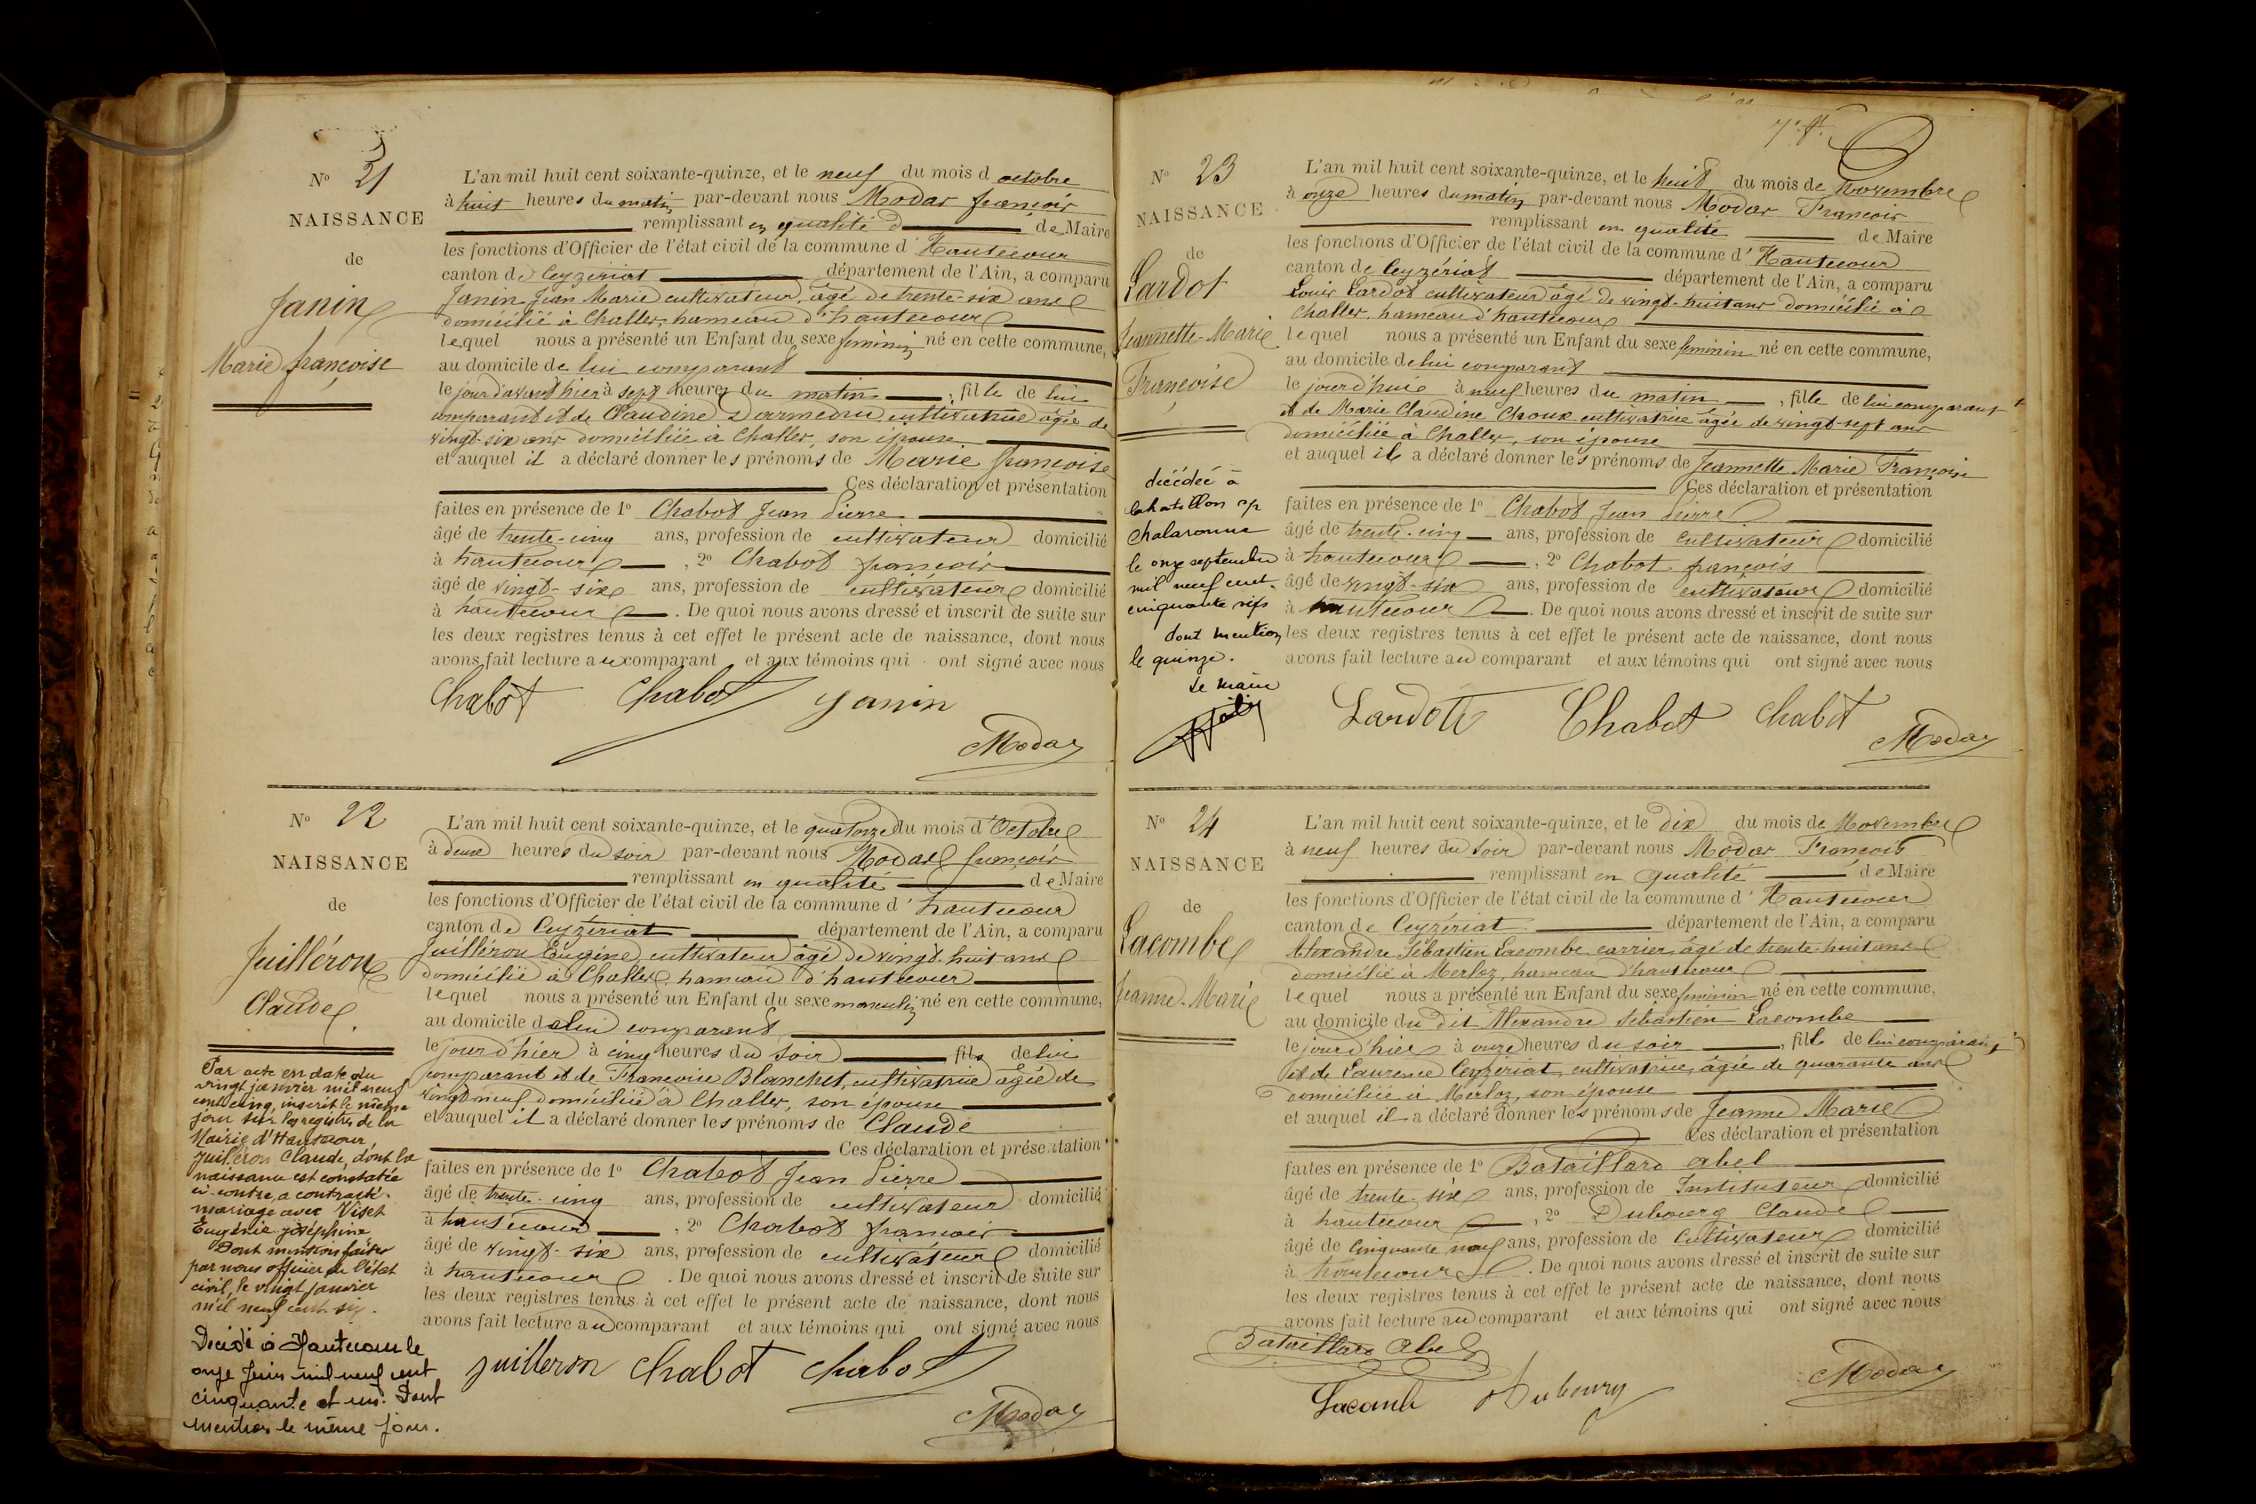 N° 21
NAISSANCE
de
Janin
Marie françoise
L'an mil huit cent soixante-quinze, et le neuf du mois d octobre
à huit heures du matin par-devant nous Modas françois
remplissant en qualité d de Maire
les fonctions d'Officier de l'état civil de la commune d' Hautecour
canton de Ceyzériat département de l'Ain, a comparu
Janin Jean Marie cultivateur, âgé de trente-six ans
domicilié à Challes, hameau d'hautecour
lequel nous a présenté un Enfant du sexe feminin né en cette commune,
au domicile de lui comparant
le jour d'avant hier à sept heures du matin, fille de lui
comparant et de Claudine cultivatrice âgée de
vingt-six ans domiciliée à Challes, son épouse
et auquel il a déclaré donner les prénoms de Marie françoise
Ces déclaration et présentation
faites en présence de 1° Chabot Jean Pierre
âgé de trente-cinq ans, profession de cultivateur domicilié
à hautecour, 2° Chabot françois
âgé de vingt-six ans, profession de cultivateur domicilié
à hautecour. De quoi nous avons dressé et inscrit de suite sur
les deux registres tenus à cet effet le présent acte de naissance, dont nous
avons fait lecture au comparant et aux témoins qui ont signé avec nous
Chabot Chabot Janin
Modas
N° 22
NAISSANCE
de
Juilléron
Claude
L'an mil huit cent soixante-quinze, et le quatorze du mois d'Octobre
à deux heures du soir par-devant nous Modas françois
remplissant en qualité de Maire
les fonctions d'Officier de l'état civil de la commune d' hautecour
canton de Ceyzériat département de l'Ain, a comparu
Juilléron Eugène, cultivateur âgé de vingt-huit ans
domicilié à Challes, hameau d'hautecour
lequel nous a présenté un Enfant du sexe masculin né en cette commune,
au domicile de lui comparant
le jour d'hier à cinq heures du soir fils de lui
comparant et de Francoise Blanchet, cultivatrice âgée de
vingt-neuf domiciliée à Challes, son épouse
et auquel il a déclaré donner les prénoms de Claude
Ces déclaration et présentation
faites en présence de 1° Chabot Jean Pierre
âgé de trente-cinq ans, profession de cultivateur domicilié
à hautecour, 2° Chabot francois
âgé de vingt-six ans, profession de cultivateur domicilié
à hautecour. De quoi nous avons dressé et inscrit de suite sur
les deux registres tenus à cet effet le présent acte de naissance, dont nous
avons fait lecture au comparant et aux témoins qui ont signé avec nous
Juilleron Chabot Chabot
Modas
Par acte en date du
vingt janvier mil neuf
cent cinq, inscrit le même
jour sur les registres de la
Mairie d'Hautecour,
Juilleron Claude, dont la
naissance est constatée
ci-contre, a contracté
mariage avec Viset
Eugénie Joséphine
Dont mention faite
par nous officier de l'état
civil, le vingt janvier
mil neuf cent
Décédé à Hautecour le
onze Juin mil neuf cent
cinquante et un. Dont
mention le même jour.
N° 23
NAISSANCE
de
Lardot
Jeannette-Marie
Françoise
L'an mil huit cent soixante-quinze, et le huit du mois de Novembre
à onze heures du matin par-devant nous Modas François
remplissant en qualité de Maire
les fonctions d'Officier de l'état civil de la commune d' Hautecour
canton de Ceyzériat département de l'Ain, a comparu
Louis Lardot cultivateur âgé de vingt-huit ans domicilié à
Challes, hameau d'hautecour
lequel nous a présenté un Enfant du sexe feminin né en cette commune,
au domicile de lui comparant
le jour d'hui à neuf heures du matin, fille de lui comparant
et de Marie Claudine Choux cultivatrice âgée de vingt-sept ans
domiciliée à Challes, son épouse
et auquel il a déclaré donner les prénoms de Jeannette Marie Françoise
Ces déclaration et présentation
faites en présence de 1° Chabot Jean Pierre
âgé de trente-cinq ans, profession de cultivateur domicilié
à hautecour, 2° Chabot françois
âgé de vingt-six ans, profession de cultivateur domicilié
à hautecour. De quoi nous avons dressé et inscrit de suite sur
les deux registres tenus à cet effet le présent acte de naissance, dont nous
avons fait lecture au comparant et aux témoins qui ont signé avec nous
Lardot Chabot Chabot
Modas
décédée à
Chatillon s/
Chalaronne
le onze septembre
mil neuf cent
cinquante
dont mention
le quinze.
Le maire
N° 24
NAISSANCE
de
Lacombe
Jeanne-Marie
L'an mil huit cent soixante-quinze, et le dix du mois de Novembre
à neuf heures du soir par-devant nous Modas François
remplissant en qualité de Maire
les fonctions d'Officier de l'état civil de la commune d' Hautecour
canton de Ceyzériat département de l'Ain, a comparu
Alexandre Sébastien Lacombe carrier, âgé de trente-huit ans
domicilié à Merloz, hameau d'hautecour
lequel nous a présenté un Enfant du sexe feminin né en cette commune,
au domicile du dit Alexandre Sébastien Lacombe
le jour d'hier à onze heures du soir, fille de lui comparant
et de Laurence Ceyzériat, cultivatrice, âgée de quarante ans
domiciliée à Merloz, son épouse
et auquel il a déclaré donner les prénoms de Jeanne Marie
Ces déclaration et présentation
faites en présence de 1° Bataillard Abel
âgé de trente-six ans, profession de Instituteur domicilié
à hautecour, 2° Dubourg Claude
âgé de Cinquante neuf ans, profession de Cultivateur domicilié
à hautecour. De quoi nous avons dressé et inscrit de suite sur
les deux registres tenus à cet effet le présent acte de naissance, dont nous
avons fait lecture au comparant et aux témoins qui ont signé avec nous
Bataillard Abel
Lacomb Dubourg Modas